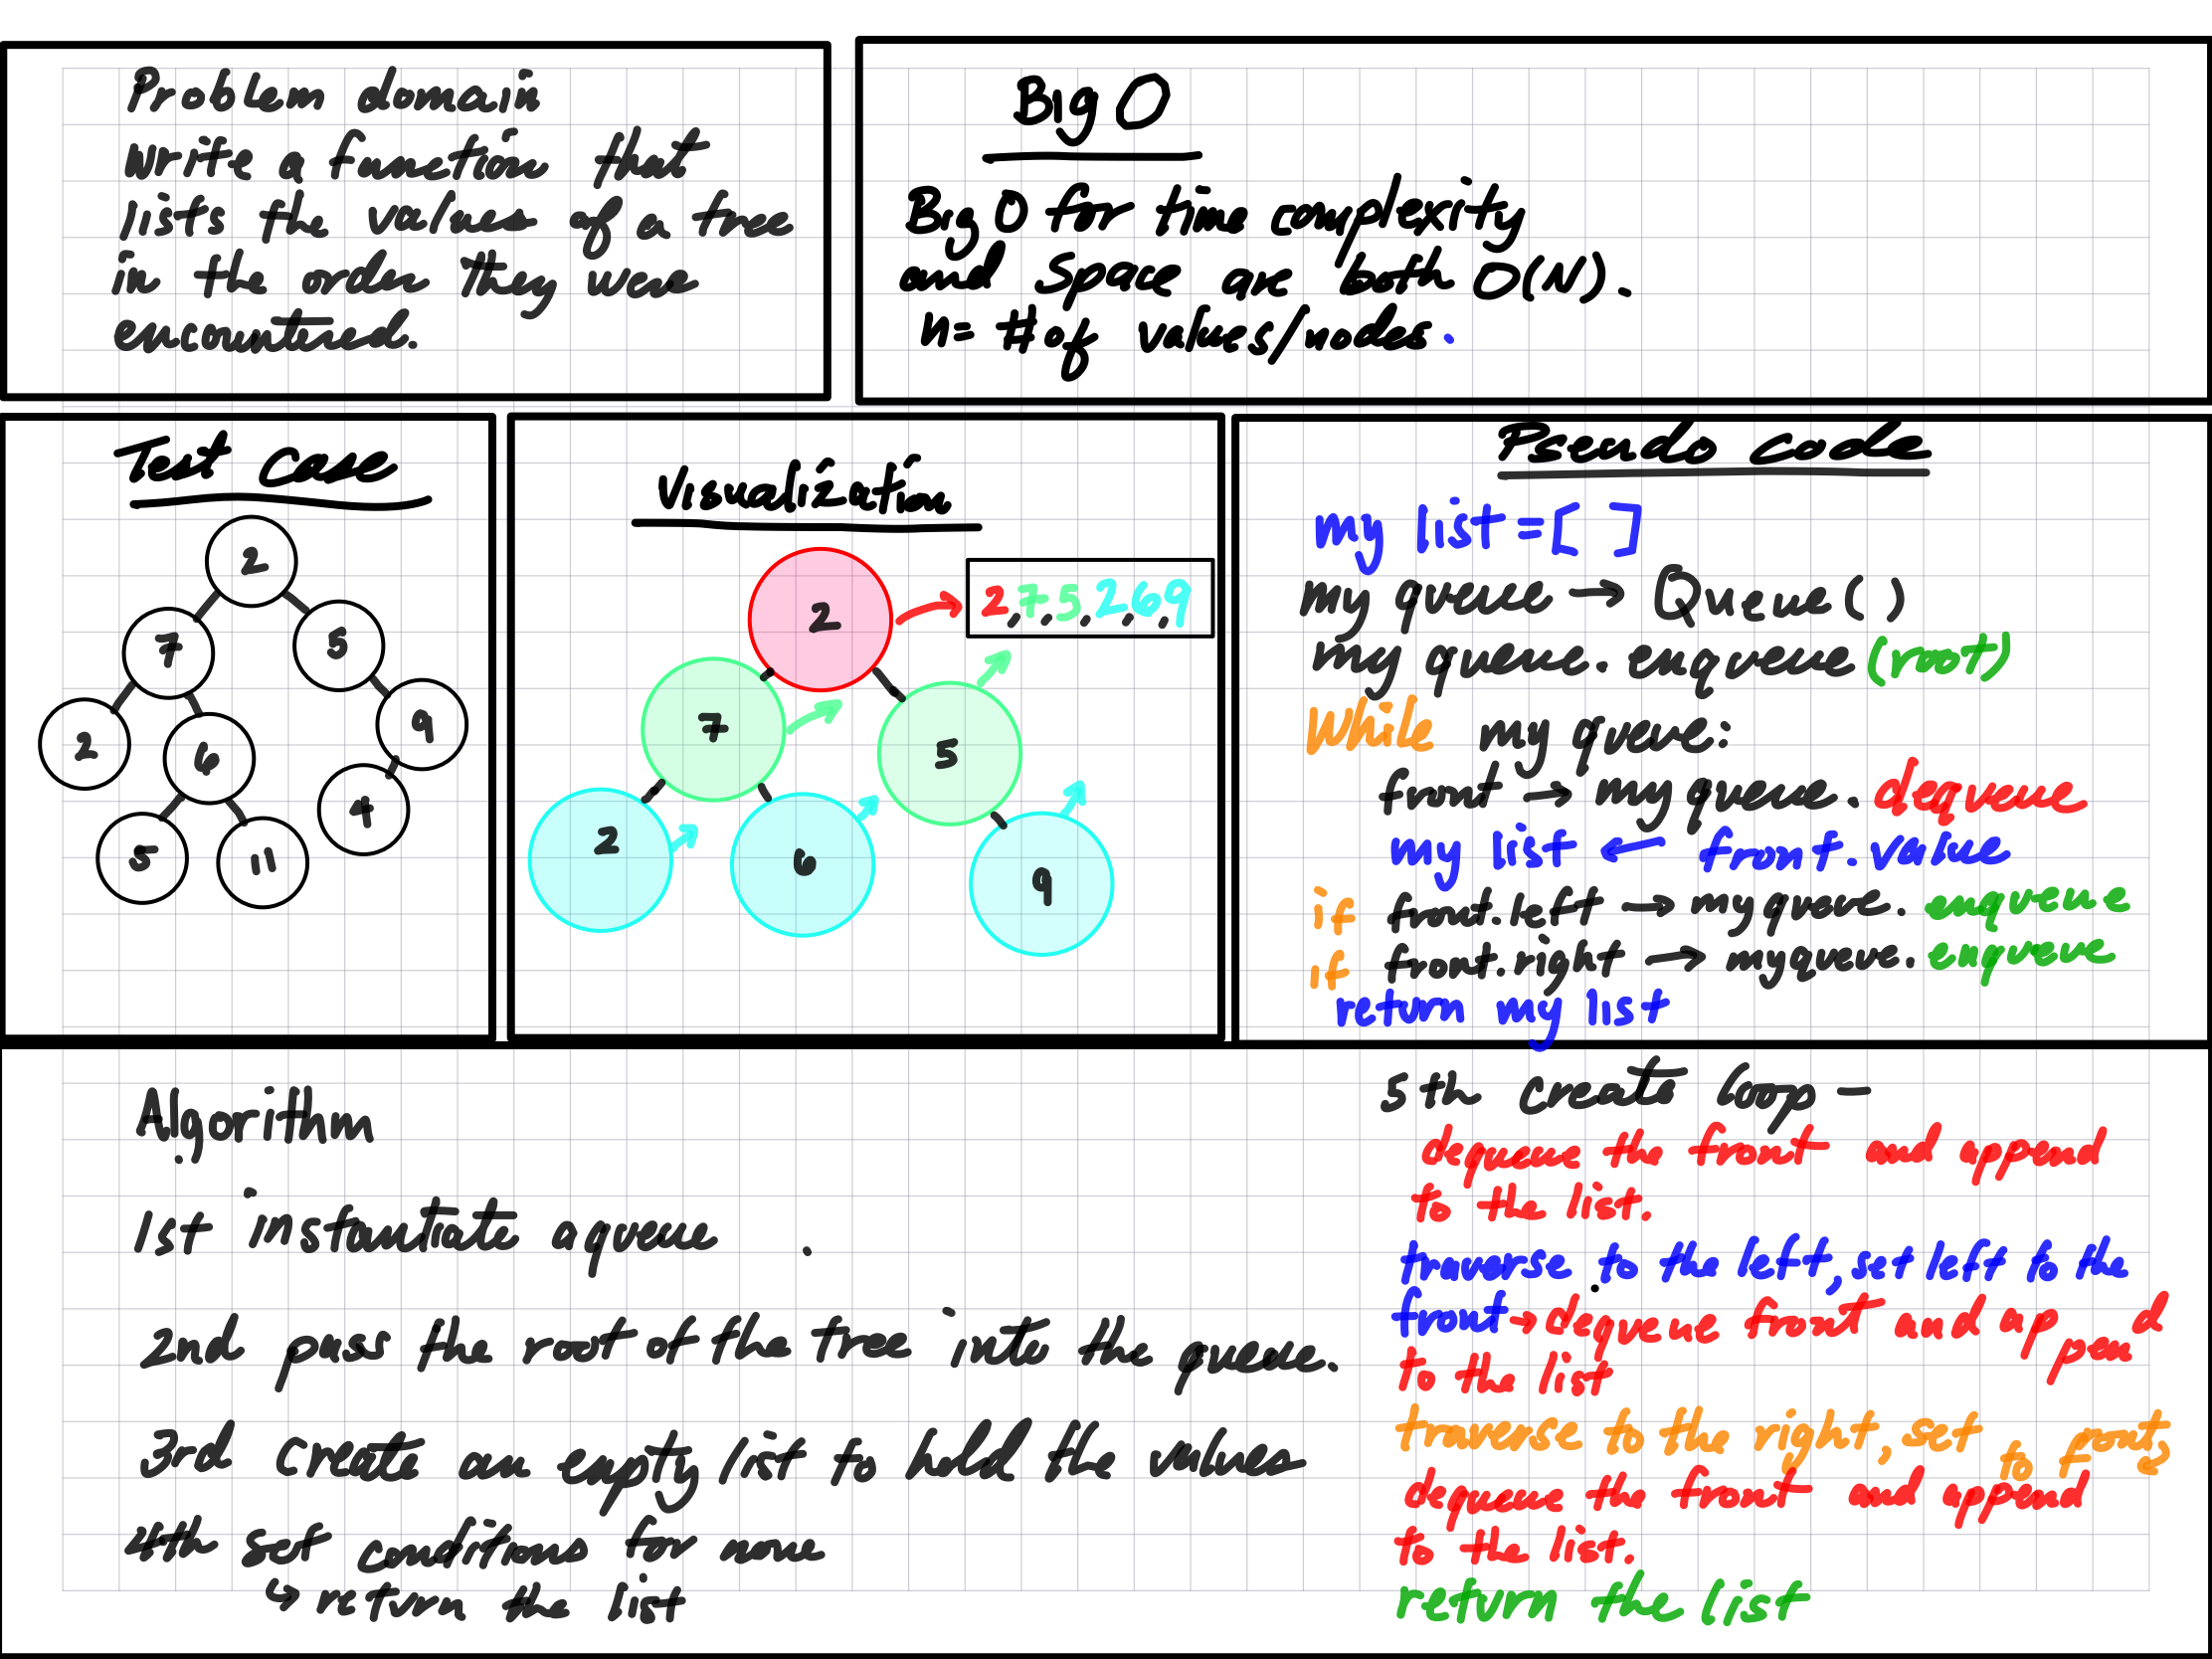 Problem domain
write a function that
lists the values of a tree
in the order they were
encountered.
Big O
Big O for time complexity
and space are both O(N).
n= # of values/nodes.
Test Case
2
7
5
2
6
9
5
11
4
Visualization
2
2,7,5,2,6,9
7
5
2
6
9
Pseudo code
my list = [ ]
my queue → Queue()
my queue. enqueue (root)
While my queue:
front → my queue. dequeue
my list ← front.value
if front.left → my queue. enqueue
if front.right → my queue. enqueue
return my list
Algorithm
1st instantiate a queue .
2nd pass the root of the tree into the queue.
3rd create an empty list to hold the values
4th set conditions for none
↳ return the list
5th create loop -
dequeue the front and append
to the list.
traverse to the left, set left to the
front → dequeue front and append
to the list
traverse to the right, set to front,
dequeue the front and append
to the list.
return the list